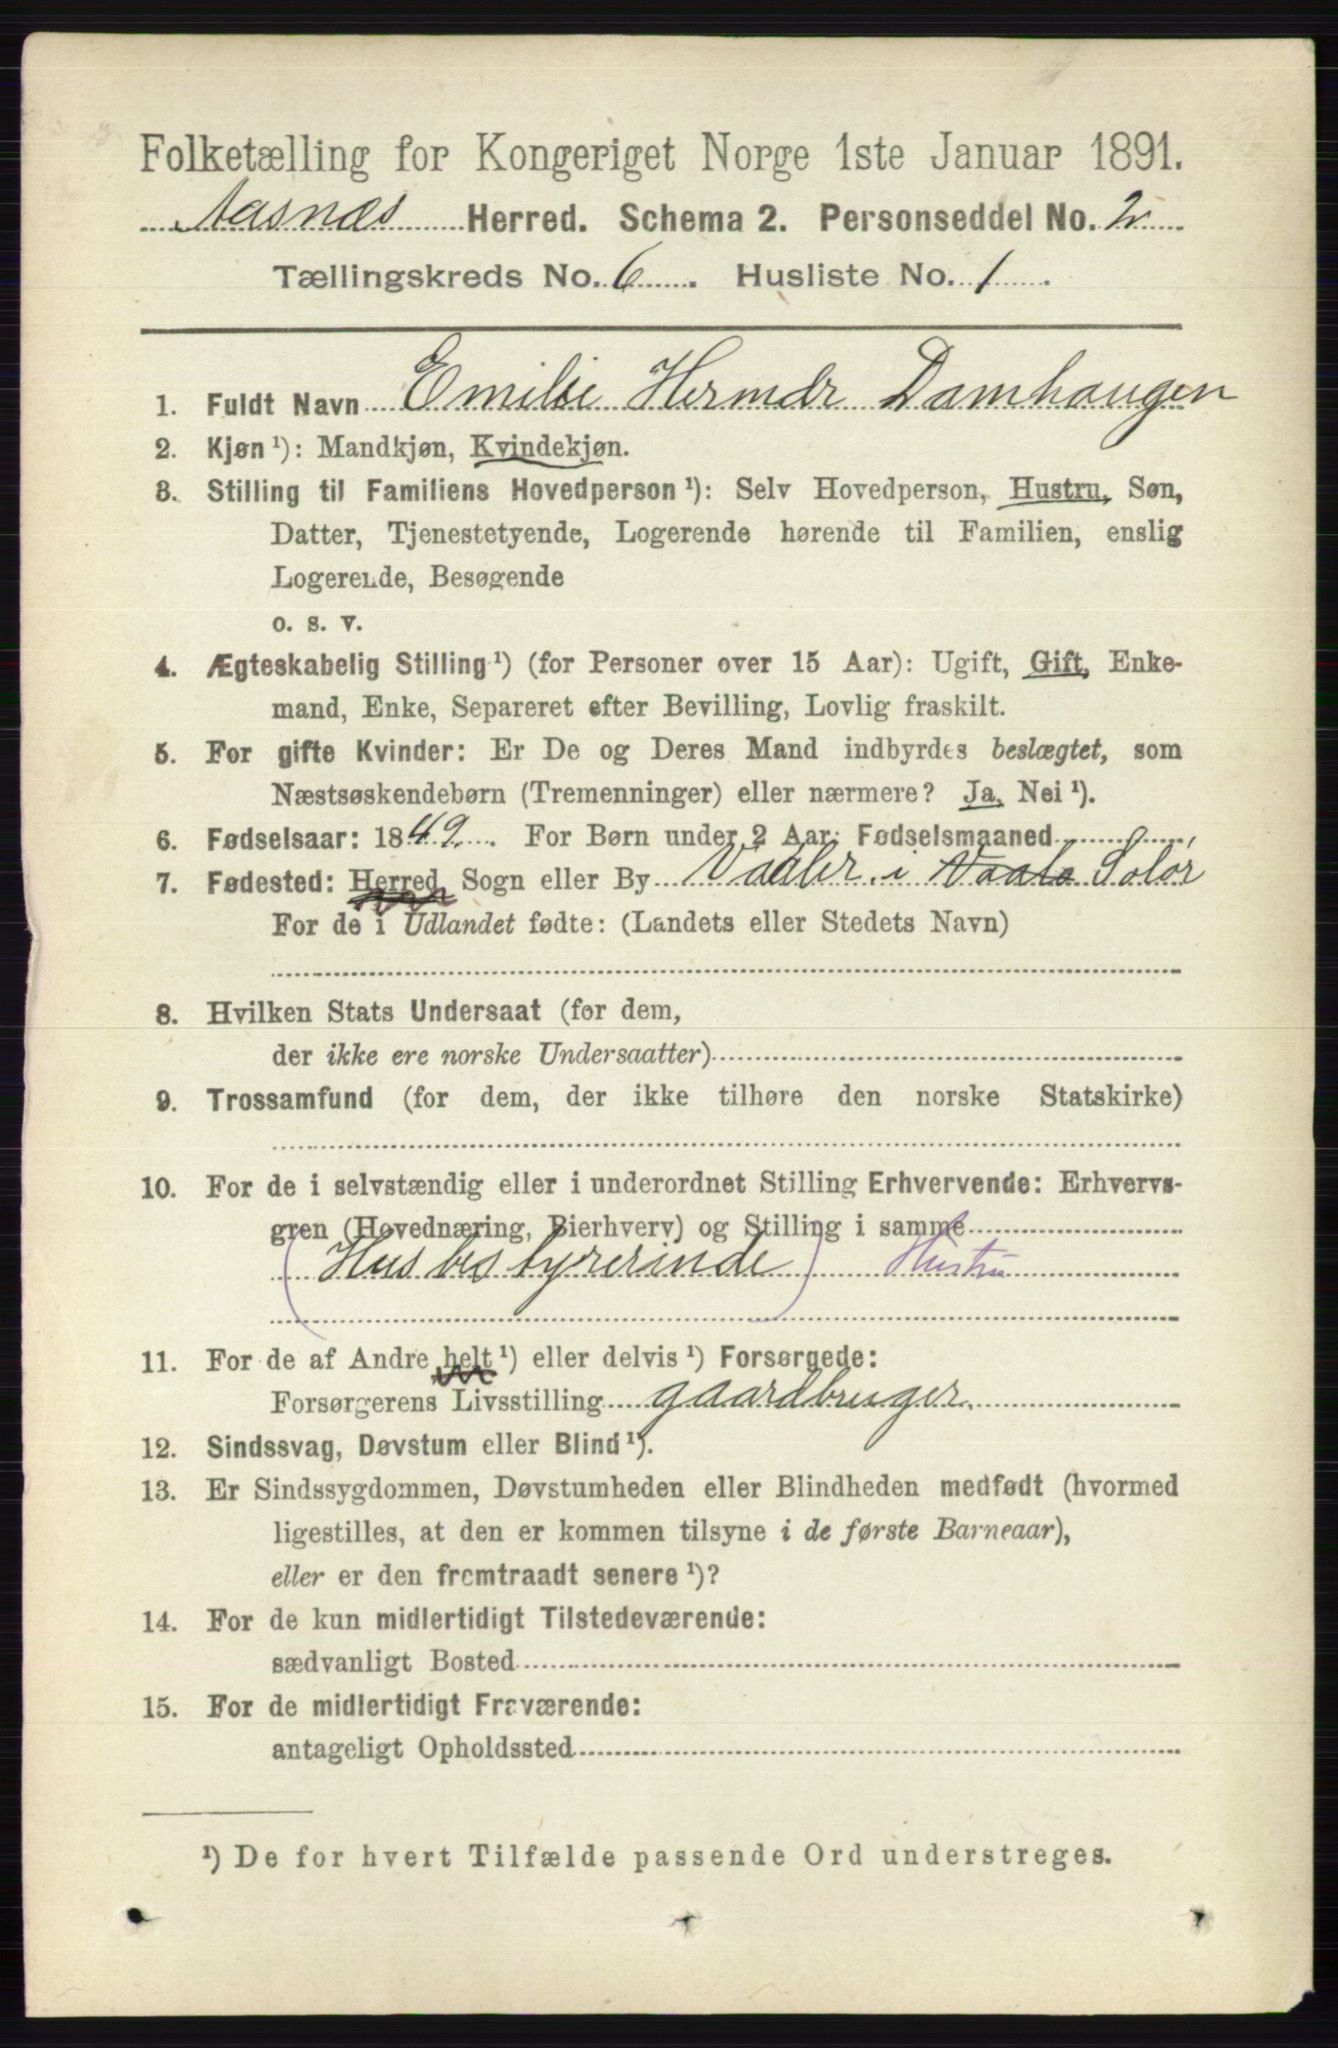 Folketælling for Kongeriget Norge 1ste Januar 1891.
Aasnæs Herred. Schema 2. Personseddel No. 2
Tællingskreds No. 6. Husliste No. 1.
1. Fuldt Navn Emilie Hermdr Damhaugen
2. Kjøn ¹): Mandkjøn, Kvindekjøn.
3. Stilling til Familiens Hovedperson ¹): Selv Hovedperson, Hustru, Søn,
Datter, Tjenestetyende, Logerende hørende til Familien, enslig
Logerende, Besøgende
o. s. v.
4. Ægteskabelig Stilling ¹) (for Personer over 15 Aar): Ugift, Gift, Enke-
mand, Enke, Separeret efter Bevilling, Lovlig fraskilt.
5. For gifte Kvinder: Er De og Deres Mand indbyrdes beslægtet, som
Næstsøskendebørn (Tremenninger) eller nærmere? Ja, Nei ¹).
6. Fødselsaar: 1849. For Børn under 2 Aar: Fødselsmaaned
7. Fødested: Herred, Sogn eller By Vaaler i Vaale Solør
For de i Udlandet fødte: (Landets eller Stedets Navn)
8. Hvilken Stats Undersaat (for dem,
der ikke ere norske Undersaatter)
9. Trossamfund (for dem, der ikke tilhøre den norske Statskirke)
10. For de i selvstændig eller i underordnet Stilling Erhvervende: Erhvervs-
gren (Hovednæring, Bierhverv) og Stilling i samme
(Husbestyrerinde) Hustru
11. For de af Andre helt ¹) eller delvis ¹) Forsørgede:
Forsørgerens Livsstilling gaardbruger.
12. Sindssvag, Døvstum eller Blind ¹).
13. Er Sindssygdommen, Døvstumheden eller Blindheden medfødt (hvormed
ligestilles, at den er kommen tilsyne i de første Barneaar),
eller er den fremtraadt senere ¹)?
14. For de kun midlertidigt Tilstedeværende:
sædvanligt Bosted
15. For de midlertidigt Fraværende:
antageligt Opholdssted
¹) De for hvert Tilfælde passende Ord understreges.